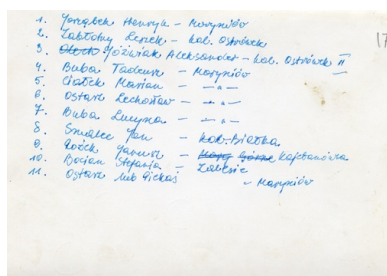 1. Jarząbek Henryk - Maryniów
2. Zabłotny Leszek - kol. Ostrówek
3. Jóźwiak Aleksander - kol. Ostrówek II
4. Buba Tadeusz - Maryniów
5. Ciołek Marian - -"-
6. Ostasz Lechosław - -"-
7. Buba Lucyna - -"-
8. Smolec Jan - Kol. Białka
9. Rożek Janusz - Kajetanówka
10. Bocian Stefania - Zalesie
11. Ostasz lub Pickoś - Maryniów
17